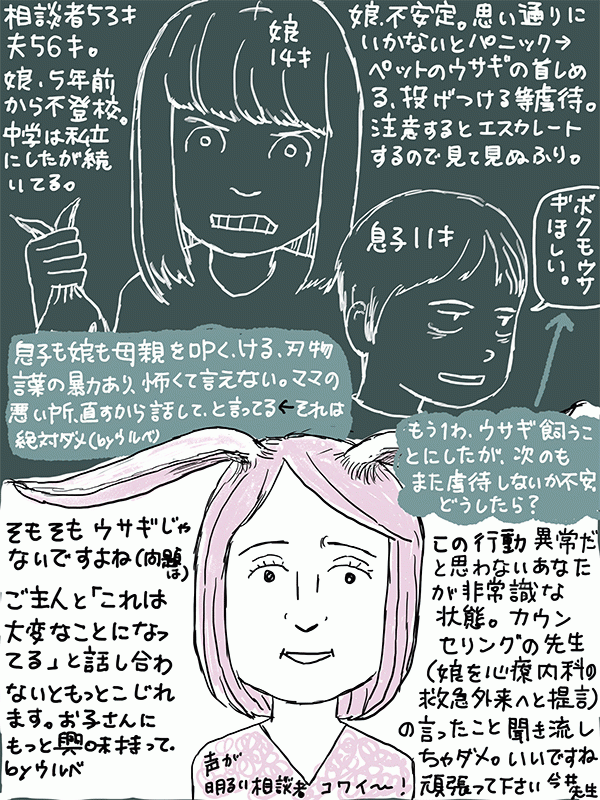 相談者53才
夫56才。
娘、5年前
から不登校。
中学は私立
にしたが続
いてる。
娘
14才
娘、不安定。思い通りに
いかないとパニック→
ペットのウサギの首しめ
る、投げつける等虐待。
注意するとエスカレート
するので見て見ぬふり。
息子11才
ボクモウサ
ギほしい。
息子も娘も母親を叩く、ける、刃物
言葉の暴力あり、怖くて言えない。ママの
悪い所、直すから話して、と言ってる←それは
絶対ダメ(byウルベ)
もう1わ、ウサギ飼うこ
とにしたが、次のも
また虐待しないか不安
どうしたら?
そもそもウサギじゃ
ないですよね(問題は)
ご主人と「これは
大変なことになっ
てる」と話し合わ
ないともっとこじれ
ます。お子さんに
もっと興味持って。
byウルベ
この行動異常だ
と思わないあなた
が非常識な
状態。カウン
セリングの先生
(娘を心療内科の
救急外来へと提言)
の言ったこと聞き流し
ちゃダメ。いいですね
頑張って下さい 今井先生
声が
明るい相談者 コワイ〜!